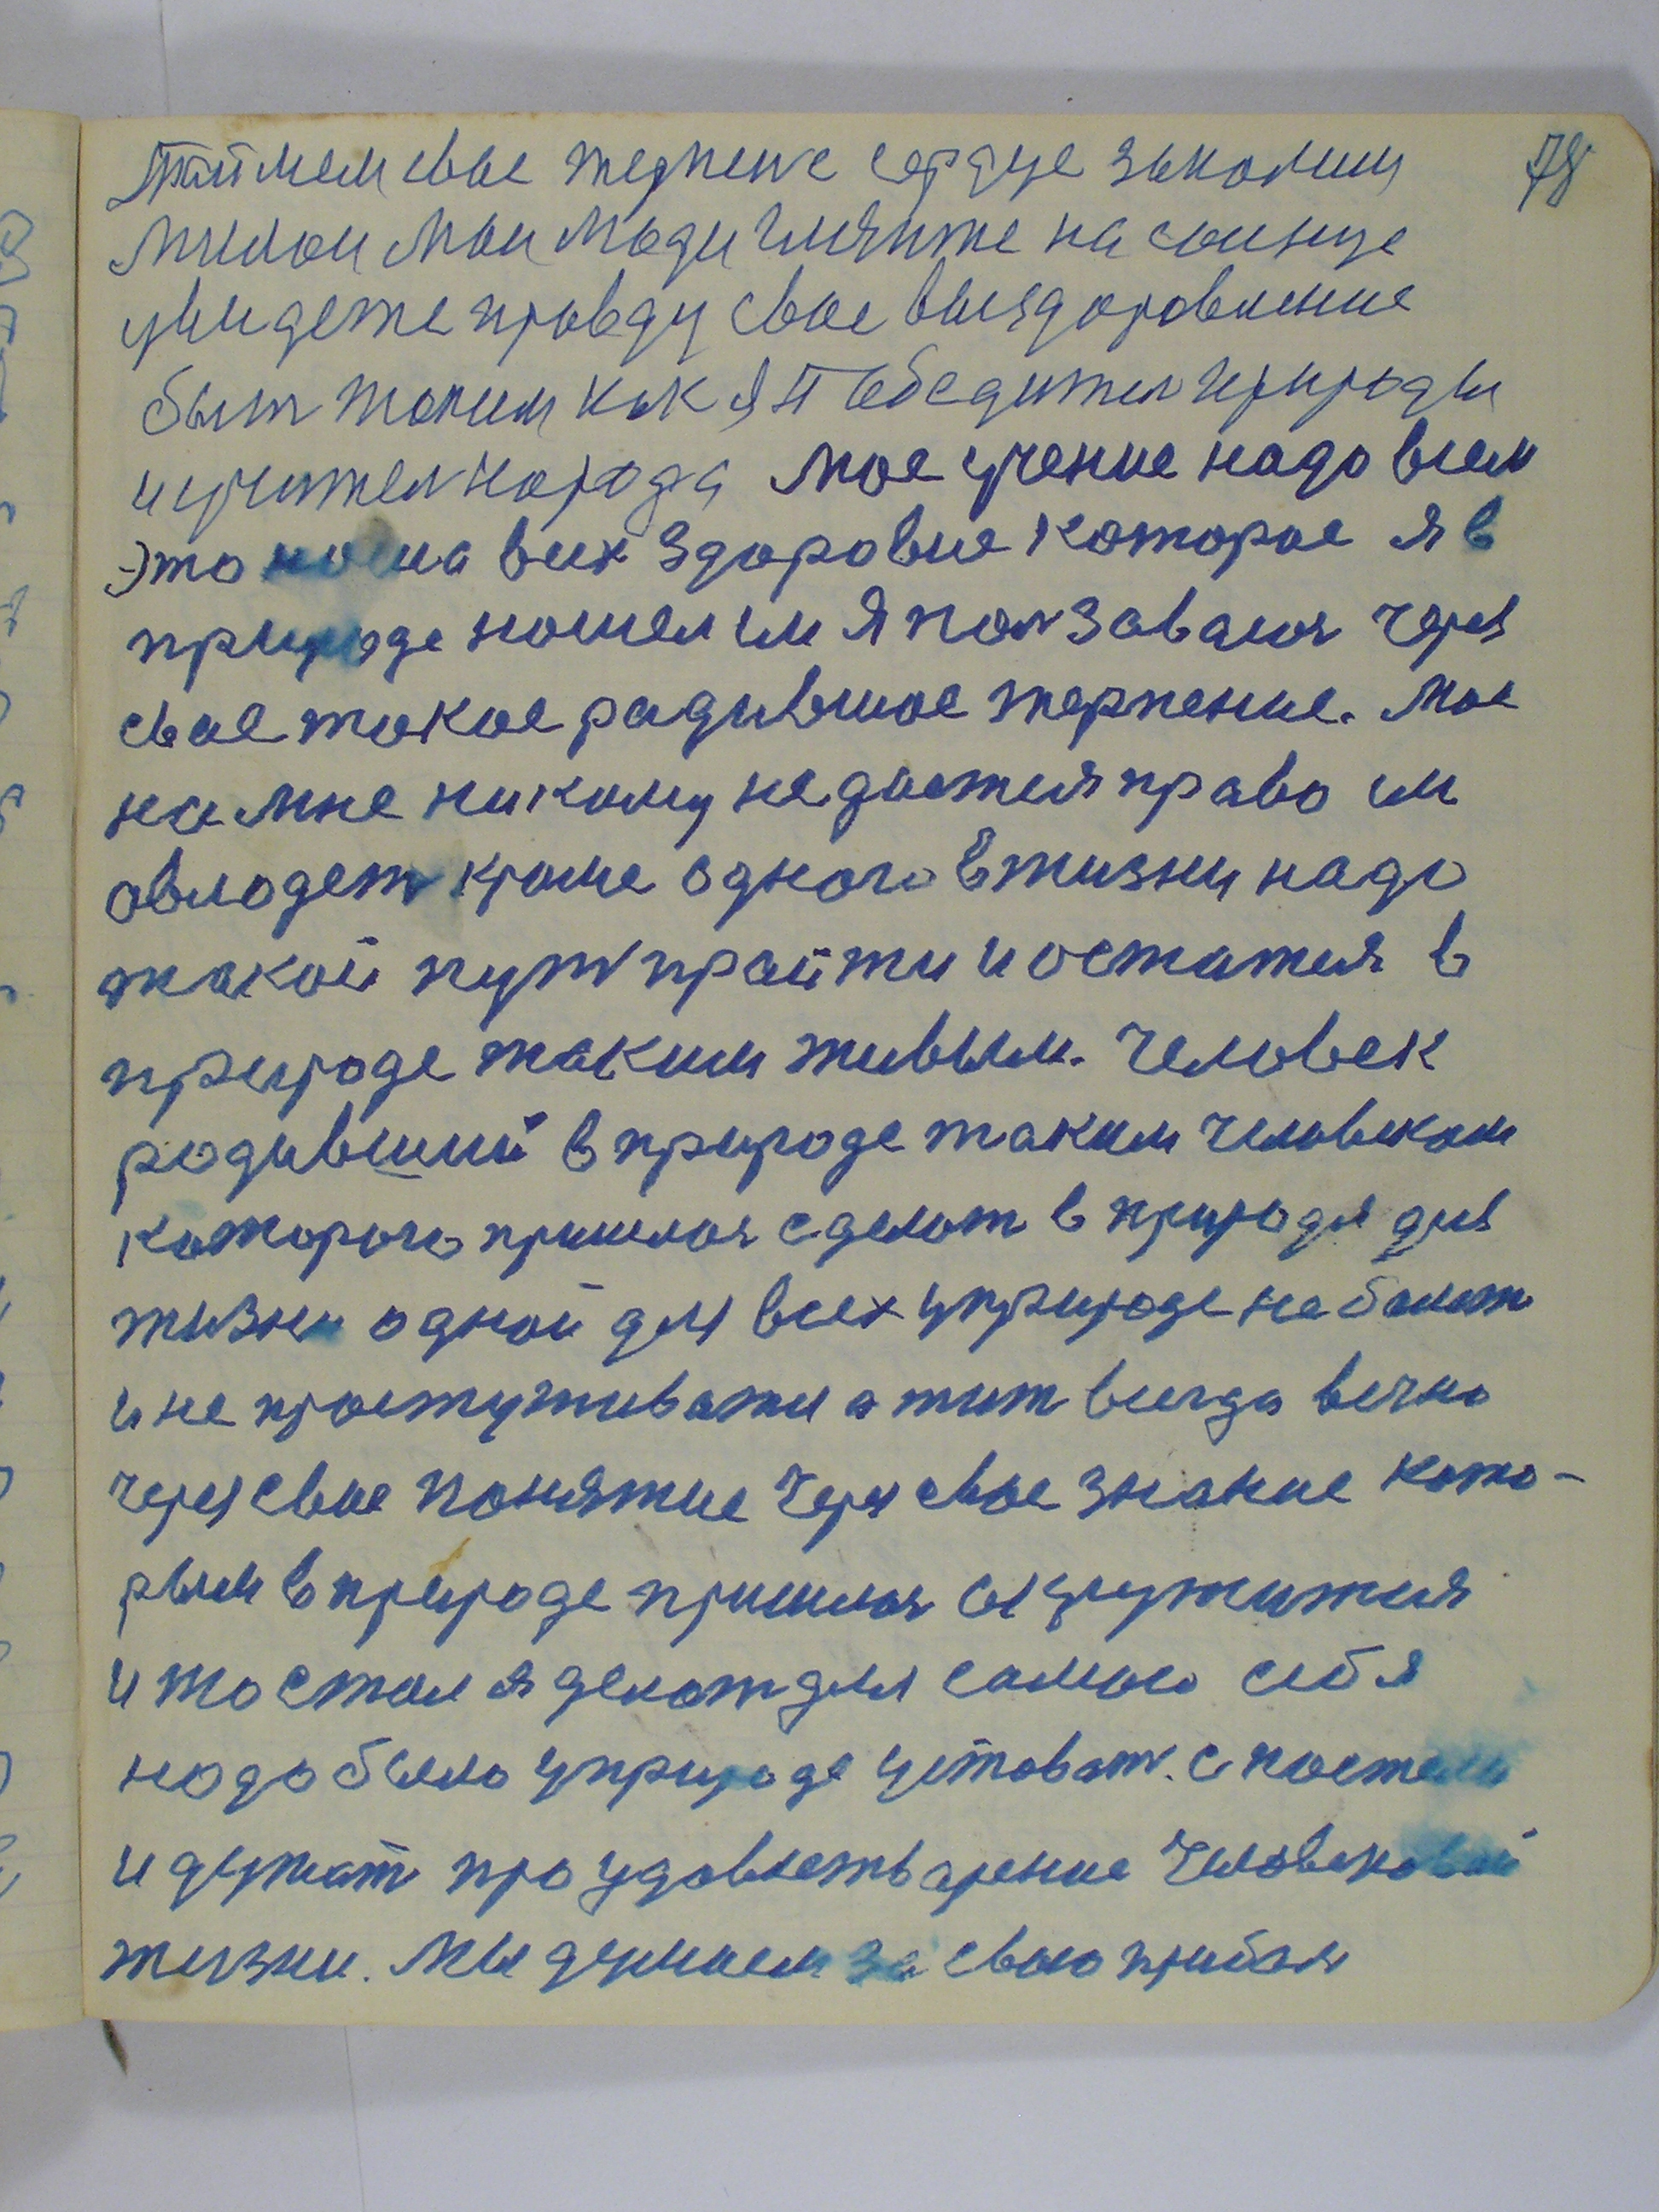 78
Паймем свае терпение сердце закалим
милои маи люди гляните на солнце
увидете правду свое выездоровление
быт таким как я Победител природы
и учител народа мое учение надо всем
Это на вех здоровие каторае я в
природе ношел им я ползавался через
свае такое радившое терпение. Мое
на мне никаму не дается право им
овлодет кроме одного в жизни надо
такой пут прайти и остатся в
природе таким живым. Человек
родивший в природе таким человеком
каторого пришлос сделот в природе для
жизни одной для всех у природе не болет
и не простуживатся а жит всегда вечно
через свое понятие через свое знание като-
рым в природе пришлос окружится
и то стал я делат для самого себя
надо было у природе устават с постели
и думат про удовлетварение человековой
жизни. Мы думаем за свою прибыл